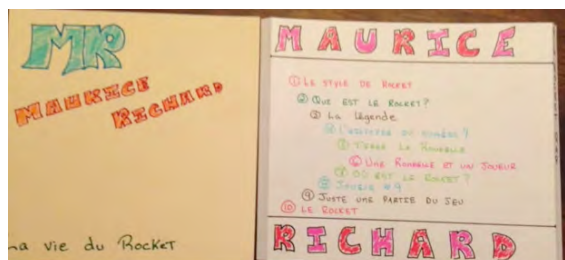 MR
MAURICE
RICHARD
La vie du Rocket
MAURICE
① LE STYLE DE ROCKET
② QUE EST LE ROCKET?
③ La Légende
④ L'HISTOIRE DU NUMÉRO 9
⑤ LA RONDELLE
⑥ UNE RONDELLE ET UN JOUEUR
⑦ OÙ EST LE ROCKET?
⑧ #9
⑨ JUSTE UNE PARTIE DU JEU
⑩ LE ROCKET
RICHARD